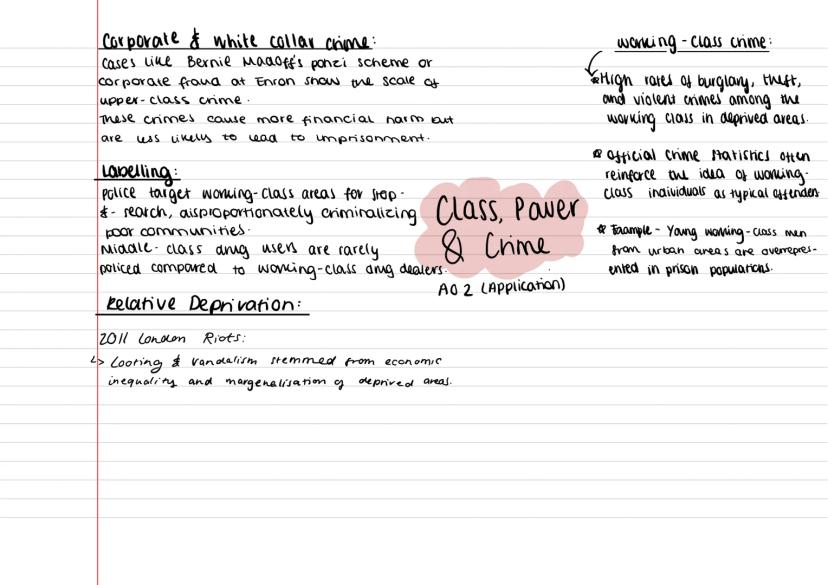 Corporate & white collar crime:
Cases like Bernie Madoff's ponzi scheme or
corporate fraud at Enron show the scale of
upper-class crime.
These crimes cause more financial harm but
are less likely to lead to imprisonment.
Labelling:
Police target working-class areas for stop-
&-search, disproportionately criminalizing
poor communities.
Middle-class drug users are rarely
policed compared to working-class drug dealers.
Relative Deprivation:
2011 London Riots:
↳ Looting & vandalism stemmed from economic
inequality and margenalisation of deprived areas.
Class, Power
& Crime
AO2 (Application)
working-class crime:
☆ High rates of burglary, theft,
and violent crimes among the
working class in deprived areas.
☆ Official crime statistics often
reinforce the idea of working-
class individuals as typical offenders
☆ Example - Young working-class men
from urban areas are overrepres-
ented in prison populations.